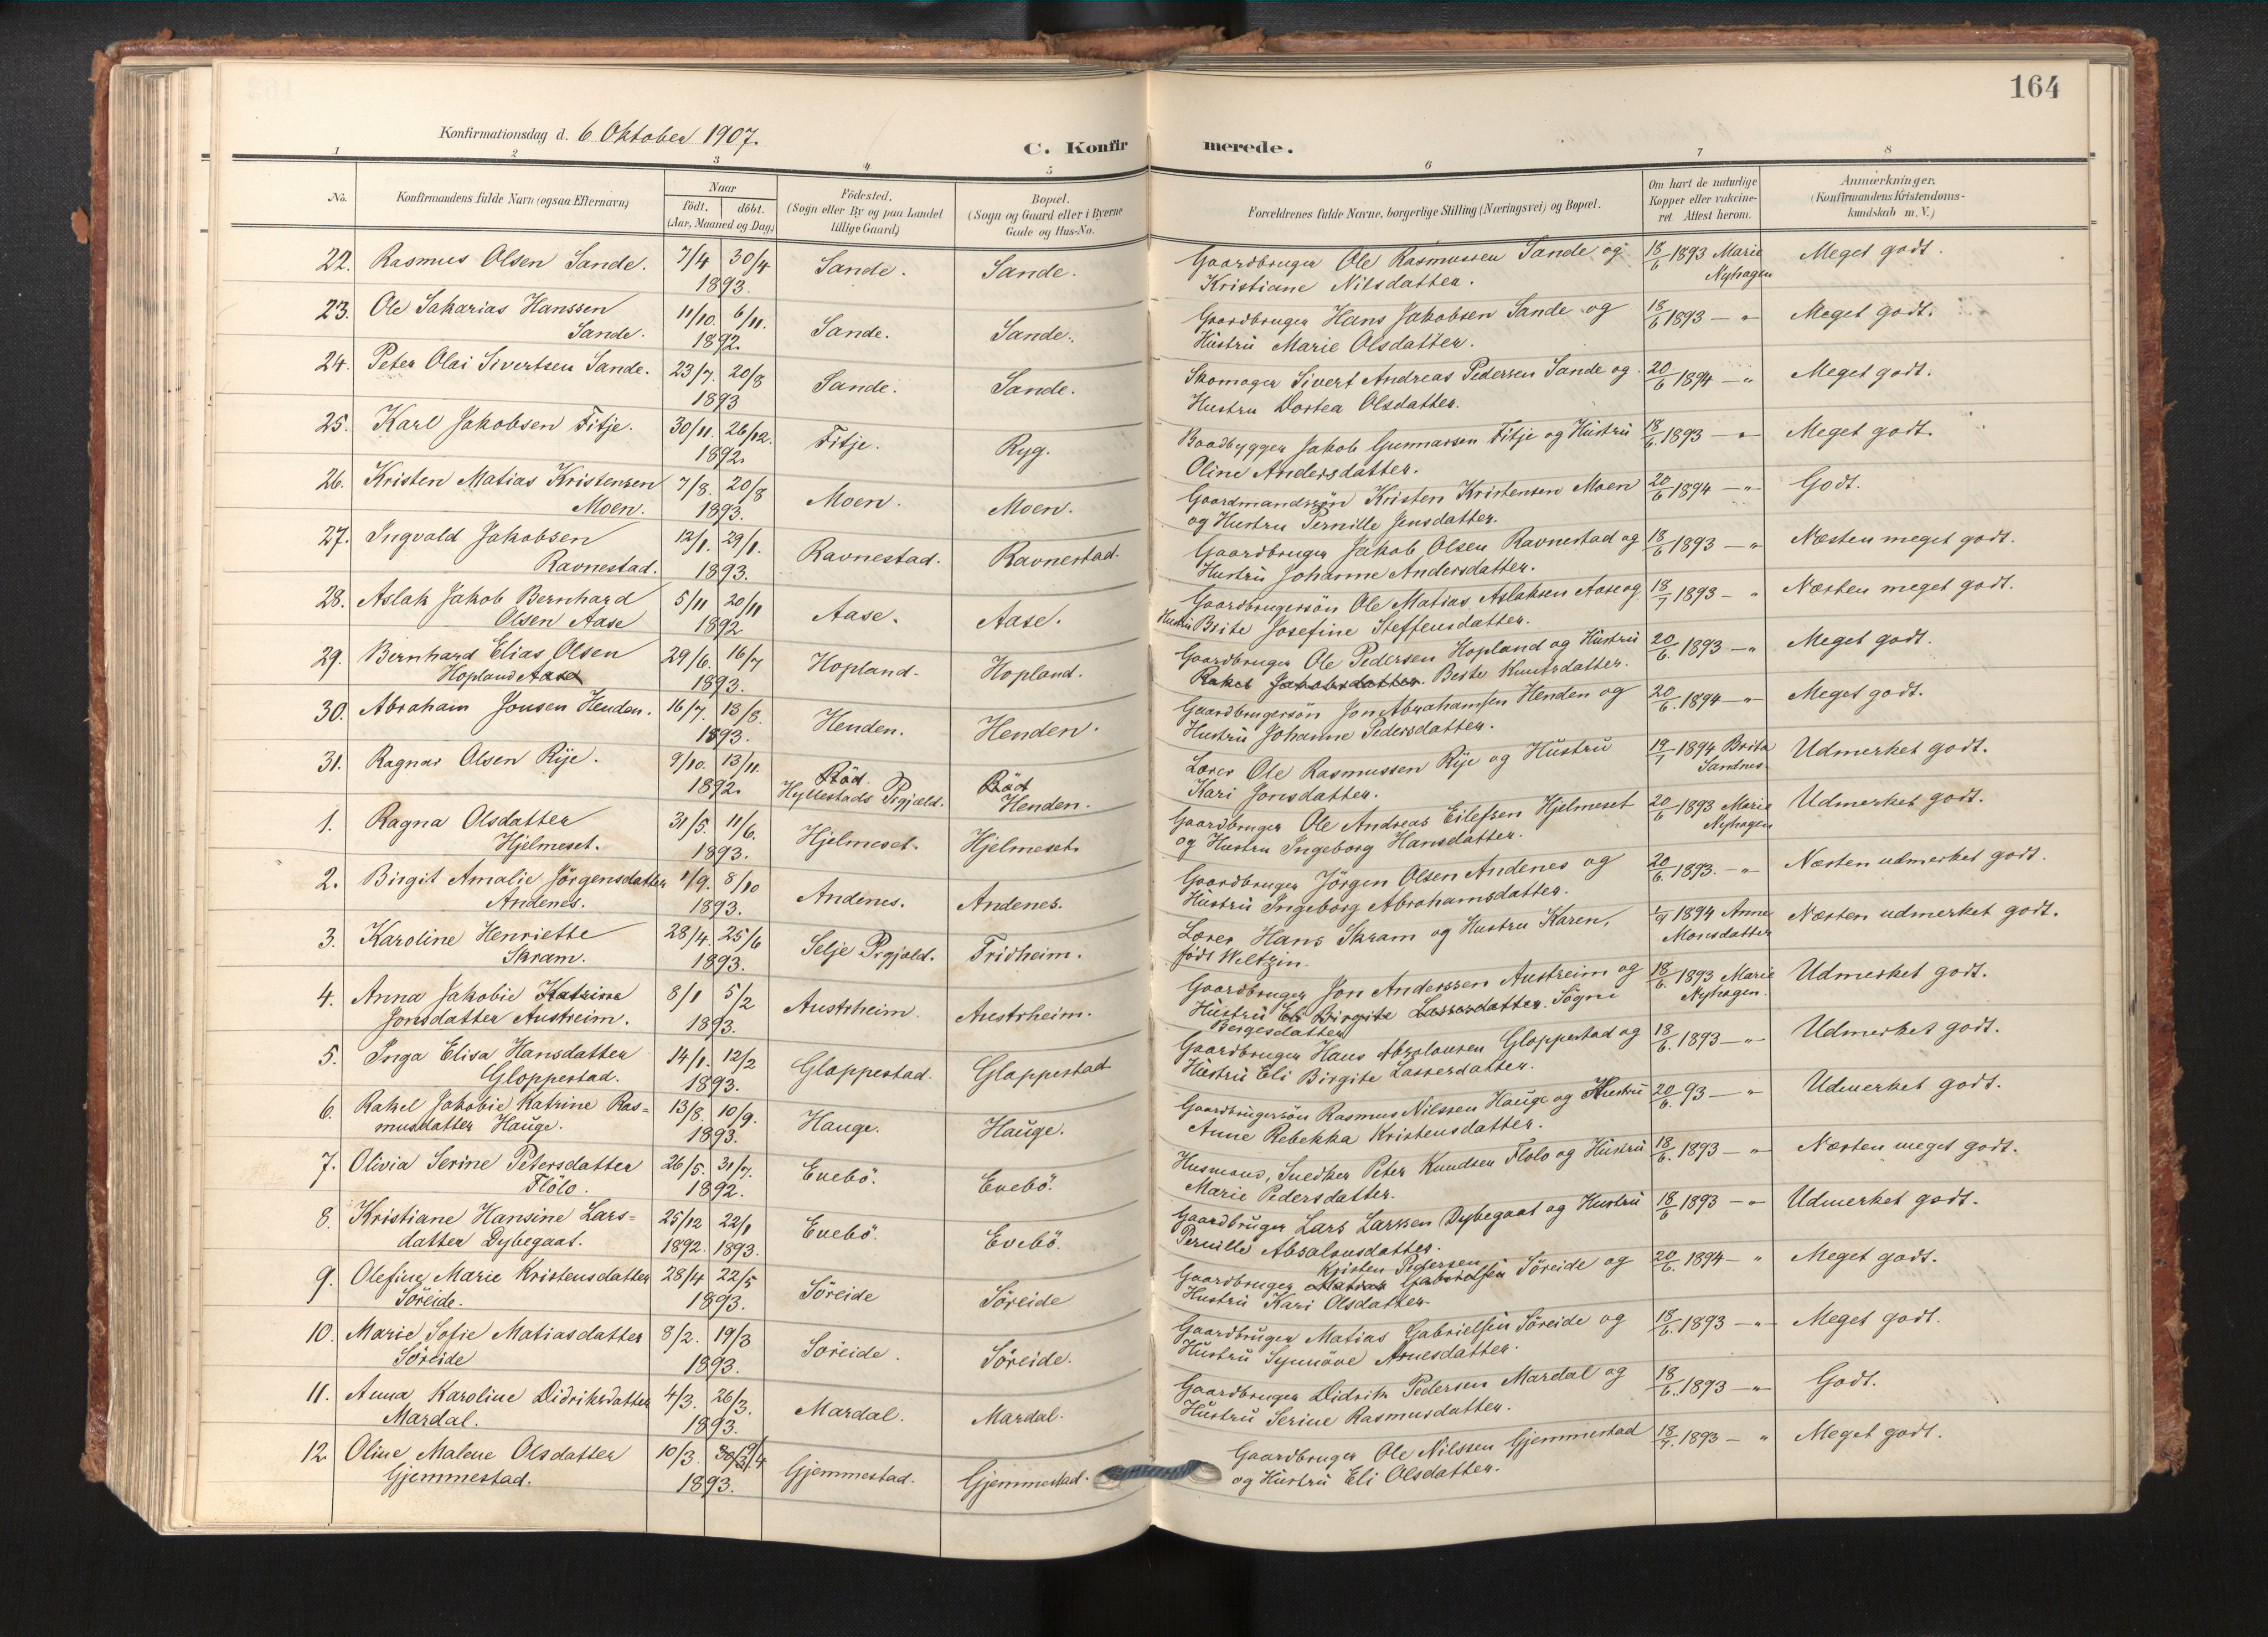 164
Konfirmationsdag d. 6 Oktober 1907.
C. Konfirmerede.
1 2 3 4 5 6 7 8
No. Konfirmandens fulde Navn (ogsaa Efternavn) Naar födt. döbt. (Aar, Maaned og Dag) Födested. (Sogn eller By og paa Landet tillige Gaard) Bopæl. (Sogn og Gaard eller i Byerne Gade og Hus-No. Forældrenes fulde Navne, borgerlige Stilling (Næringsvei) og Bopæl. Om havt de naturlige Kopper eller vakcineret Attest herom. Anmærkninger. (Konfirmandens Kristendomskundskab m. V.)
22. Rasmus Olsen Sande. 7/4 30/4 1893. Sande. Sande. Gaardbruger Ole Rasmussen Sande og Kristiane Nilsdatter. 18/6 1893 Marie Nyhagen Meget godt.
23. Ole Sakarias Hanssen Sande. 11/10. 6/11. 1892. Sande. Sande. Gaardbruger Hans Jakobsen Sande og Hustru Marie Olsdatter. 18/6 1893 — " Meget godt.
24. Peter Olai Sivertsen Sande. 23/7. 20/8 1893 Sande. Sande. Skomager Sivert Andreas Pedersen Sande og Hustru Dortea Olsdatter. 20/6 1894 — " Meget godt.
25. Karl Jakobsen Fitje. 30/11. 26/12. 1892. Fitje. Ryg. Baadbygger Jakob Gunnarsen Fitje og Hustru Oline Andersdatter. 18/6. 1893 — " Meget godt.
26. Kristen Matias Kristensen Moen. 7/8. 20/8 1893. Moen. Moen. Gaardmandssön Kristen Kristensen Moen og Hustru Pernille Jensdatter. 20/6 1894 — " Godt.
27. Ingvald Jakobsen Ravnestad. 12/1. 29/1. 1893. Ravnestad. Ravnestad. Gaardbruger Jakob Olsen Ravnestad og Hustru Johanne Andersdatter. 18/6 1893 — " Næsten meget godt.
28. Aslak Jakob Bernhard Olsen Aase 5/11 20/11 1892 Aase. Aase. Gaardbrugersön Ole Matias Aslaksen Aase og Hustru Brite Josefine Steffensdatter. 18/7 1893 — " Næsten meget godt.
29. Bernhard Elias Olsen Hopland Aase 29/6. 16/7 1893. Hopland. Hopland. Gaardbruger Ole Pedersen Hopland og Hustru Rakel Jakobsdatter. Berte Knutsdatter. 20/6. 1893 — " Meget godt.
30. Abraham Jonsen Henden. 16/7. 13/8. 1893. Henden. Henden. Gaardbrugersön Jon Abrahamsen Henden og Hustru Johanne Pedersdatter. 20/6. 1894 — " Meget godt.
31. Ragnar Olsen Rye. 9/10. 13/11. 1892. Röd. Hyllestads Prgjæld. Röd Henden. Lærer Ole Rasmussen Rye og Hustru Kari Jonsdatter. 19/1 1894 Brita Sandnes. Udmerket godt.
1. Ragna Olsdatter Hjelmeset. 31/5. 11/6. 1893. Hjelmeset. Hjelmeset. Gaardbruger Ole Andreas Eilefsen Hjelmeset og Hustru Ingeborg Hansdatter. 20/6 1893 Marie Nyhagen Udmerket godt.
2. Birgit Amalie Jörgensdatter Andenes. 1/9. 8/10 1893. Andenes. Andenes. Gaardbruger Jörgen Olsen Andenes og Hustru Ingeborg Abrahamsdatter. 20/6. 1893. — " Næsten udmerket godt.
3. Karoline Henriette Skram. 28/4. 25/6 1893. Selje Prgjæld. Fridheim. Lærer Hans Skram og Hustru Karen, födt Weltzin. 1894 Anne Monsdatter Næsten udmerket godt.
4. Anna Jakobie Katrine Jonsdatter Austreim. 8/1 5/2 1893. Austrheim. Austrheim. Gaardbruger Jon Anderssen Austreim og Hustru Eli Birgite Lassesdatter. Sögni Bergesdatter 18/6. 1893 Marie Nyhagen. Udmerket godt.
5. Inga Elisa Hansdatter Gloppestad. 14/1. 12/2 1893. Gloppestad. Gloppestad Gaardbruger Hans Absolonsen Gloppestad og Hustru Eli Birgite Lassesdatter. 18/6. 1893 — " Udmerket godt.
6. Rakel Jakobie Katrine Rasmusdatter Hauge. 13/8. 10/9. 1893. Hauge. Hauge. Gaardbrugersön Rasmus Nilssen Hauge og Hustru Anne Rebekka Kristensdatter. 20/6. 93 — " Udmerket godt.
7. Olivia Serine Petersdatter Flölo. 26/5. 31/7. 1892. Evebö. Evebö. Husmand, Snedker Peter Knudsen Flölo og Hustru Marie Pedersdatter. 18/6. 1893 — " Næsten meget godt.
8. Kristiane Hansine Larsdatter Dybegaat. 25/12 1892. 22/1 1893. Evebö. Evebö. Gaardbruger Lars Larssen Dybegaat og Hustru Pernille Absalonsdatter. 18/6 1893 — " Udmerket godt.
9. Olefine Marie Kristensdatter Söreide. 28/4 22/5 1893. Söreide Söreide Gaardbruger Matias Gabrielsen Kristen Pedersen Söreide og Hustru Kari Olsdatter. 20/6. 1894 — " Meget godt.
10. Marie Sofie Matiasdatter Söreide 8/2. 19/3 1893. Söreide. Söreide. Gaardbruger Matias Gabrielsen Söreide og Hustru Synnöve Arnesdatter. 18/6. 1893 — " Meget godt.
11. Anna Karoline Didriksdatter Mardal. 4/3. 26/3. 1893. Mardal. Mardal. Gaardbruger Didrik Pedersen Mardal og Hustru Serine Rasmusdatter. 18/6. 1893 — " Godt.
12. Oline Malene Olsdatter Gjemmestad. 10/3. 30/3 9/4 1893. Gjemmestad. Gjemmestad. Gaardbruger Ole Nilssen Gjemmestad og Hustru Eli Olsdatter. 18/7. 1893 — " Meget godt.